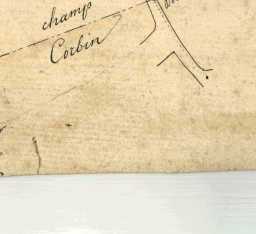 champ
Corbin